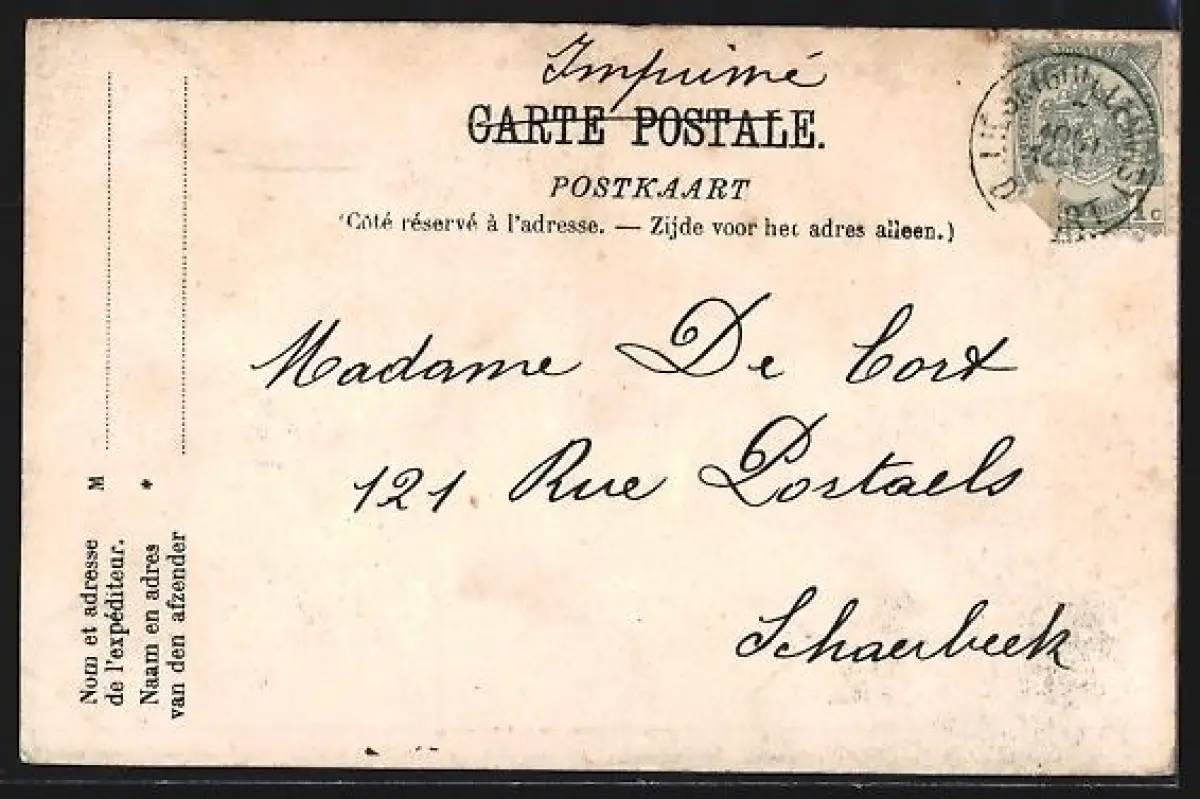 Imprimé
CARTE POSTALE.
POSTKAART
(Côté réservé à l'adresse. — Zijde voor het adres alleen.)
1 c
Madame De Cort
121 Rue Portaels
Schaerbeek
Nom et adresse
de l'expéditeur.
M
Naam en adres
van den afzender
*